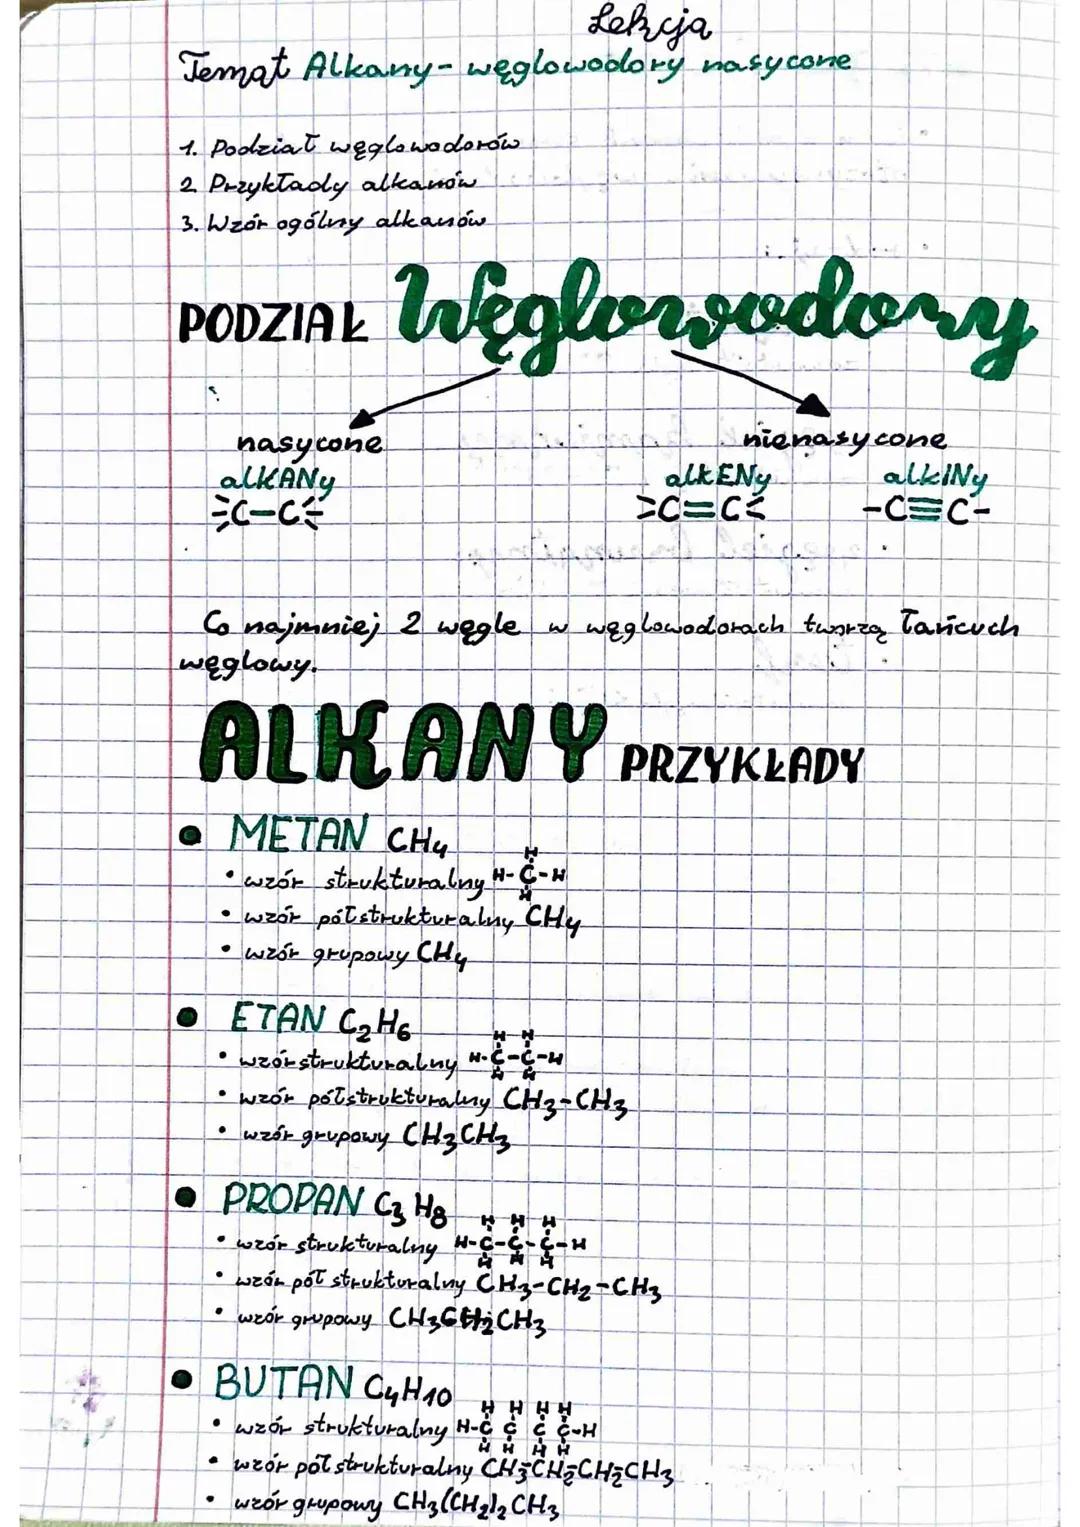 Lekcja
Temat Alkany - węglowodory nasycone
1. Podział węglowodorów
2. Przykłady alkanów
3. Wzór ogólny alkanów
PODZIAŁ Węglowodory
nasycone nienasycone
alkANy alkENy alkINy
>C-C< >C=C< -C≡C-
Co najmniej 2 węgle w węglowodorach tworzą łańcuch
węglowy.
ALKANY PRZYKŁADY
• METAN CH4
H
• wzór strukturalny H-C-H
H
• wzór półstrukturalny CH4
• wzór grupowy CH4
• ETAN C2H6
H H
• wzór strukturalny H-C-C-H
H H
• wzór półstrukturalny CH3-CH3
• wzór grupowy CH3CH3
• PROPAN C3H8
H H H
• wzór strukturalny H-C-C-C-H
H H H
• wzór pół strukturalny CH3-CH2-CH3
• wzór grupowy CH3CH2CH3
• BUTAN C4H10
H H H H
• wzór strukturalny H-C C C C-H
H H H H
• wzór półstrukturalny CH3-CH2-CH2-CH3
• wzór grupowy CH3(CH2)2CH3